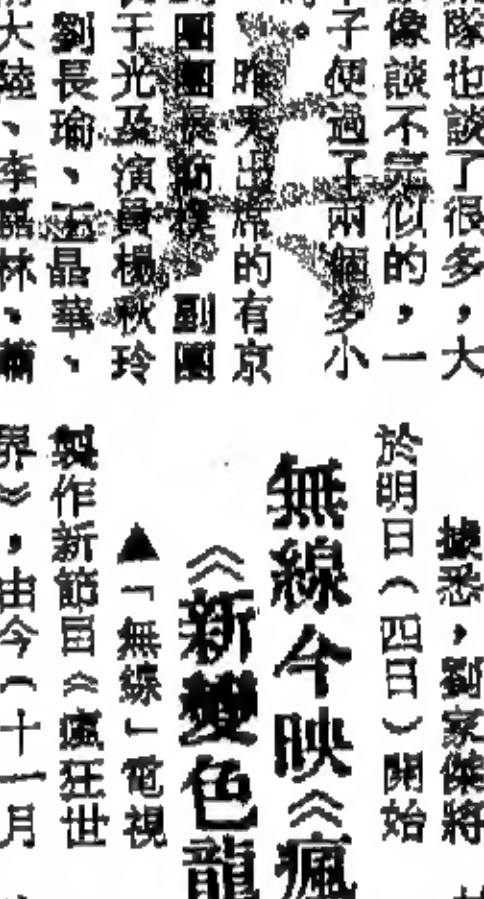 隊也談了很多，大
像談不完似的，一
子便過了兩個多小
昨天出席的有京
團團長、副團
于光及演員楊秋玲
劉長瑜、王晶華、
大陸、李嘉林、
據悉，劉家傑將
於明日（四日）開始
無線今映《瘋
《新變色龍
▲「無線」電視
製作新節目《瘋狂世
界》，由今（十一月